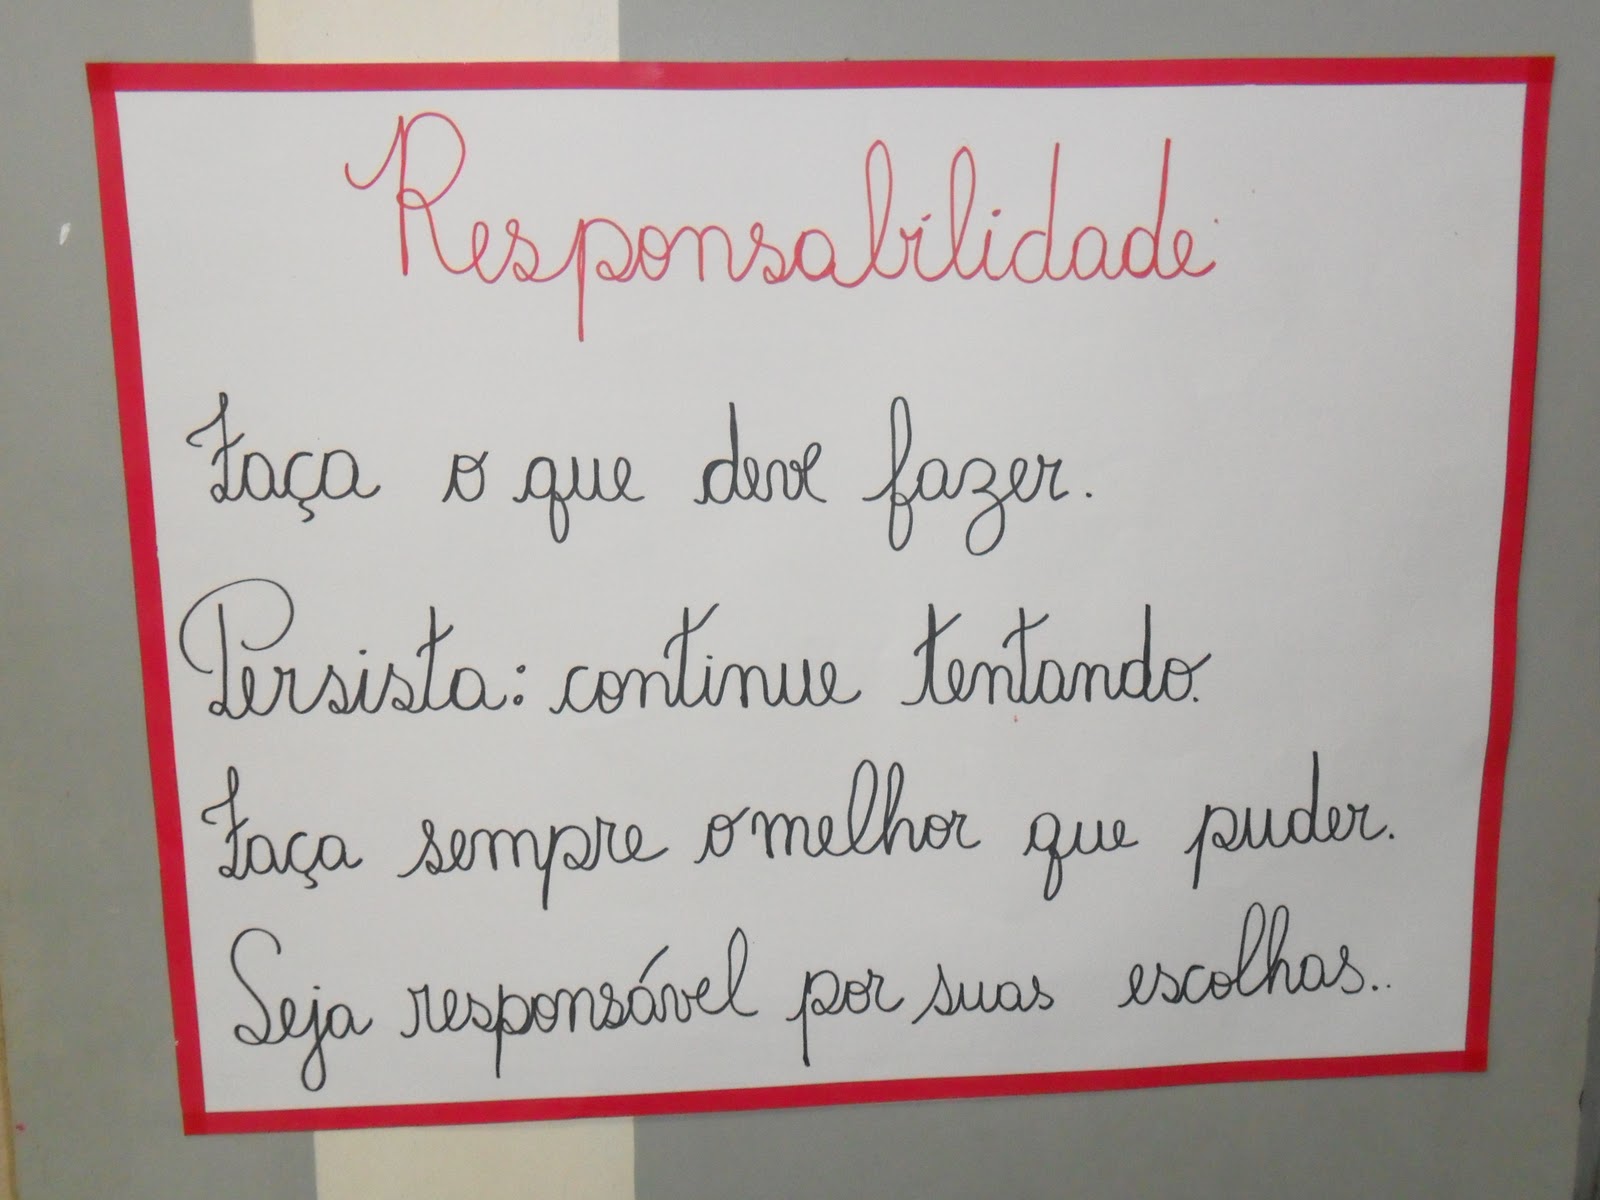 Responsabilidade
Faça o que deve fazer.
Persista: continue tentando.
Faça sempre o melhor que puder.
Seja responsável por suas escolhas..